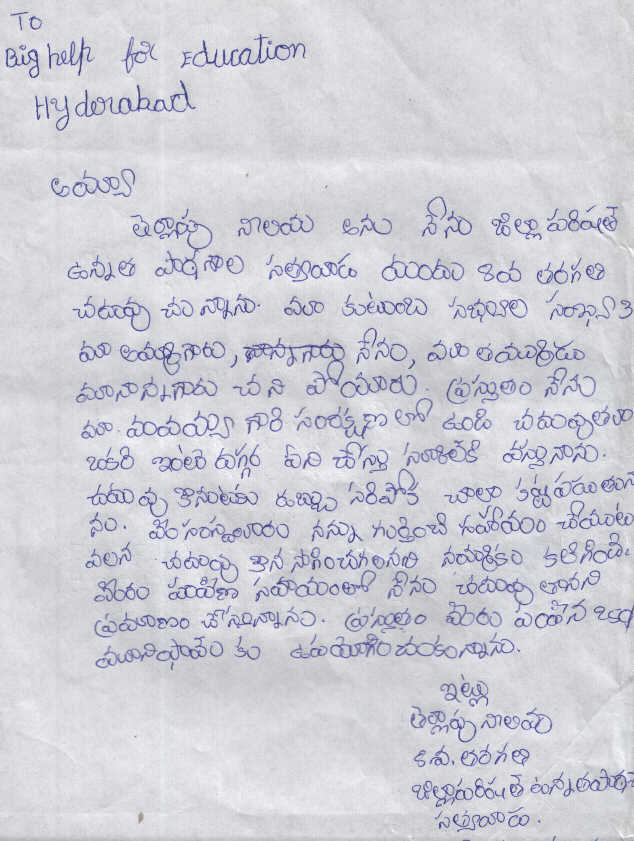 To
Big help for Education
Hyderabad
అయ్యా
తెల్లాపు నాలయ అను నేను జిల్లా పరిషత్
ఉన్నత పాఠశాల సత్యవాడ యందు 8వ తరగతి
చదువు చున్నాను. మా కుటుంబ సభ్యుల సంఖ్య 3
మా అమ్మగారు, నేను, మా తమ్ముడు
మా నాన్నగారు చని పోయారు. ప్రస్తుతం నేను
మా మావయ్య గారి సంరక్షణ లో ఉండి చదువుతూ
ఒకరి ఇంటి దగ్గర పని చేస్తూ స్కూలుకి వస్తున్నాను.
చదువు కొనుటకు డబ్బు సరిపోక చాలా కష్ట
నం. మీ సంస్థవారు నన్ను గుర్తించి సహాయం చేయుట
వలన చదువు కొన సాగించగలనని నమ్మకం కలిగింది.
మీరు చేసిన సహాయంతో నేను చదువు తానని
ప్రమాణం చేస్తున్నాను. ప్రస్తుతం మీరు పంపిన
యూనిఫాం కు ఉపయోగించుకున్నాను.
ఇట్లు
తెల్లాపు నాలయ
8వ. తరగతి
జిల్లా పరిషత్ ఉన్నత
సత్యవాడ.